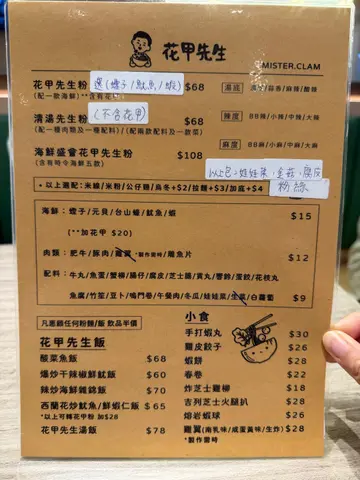 花甲先生
MISTER.CLAM
花甲先生粉 選(蟶子/魷魚/蝦) $68
(配一款海鮮)**含有花甲
湯底 清湯/蒜香/麻辣/酸辣
清湯先生粉 (不含花甲) $68
(配一種肉類及一種配料)/(配兩款配料及一款菜)
辣度 BB辣/小辣/中辣/大辣
海鮮盛會花甲先生粉 $108
(含有時令海鮮五款)
麻度 BB麻/小麻/中麻/大麻
以上包:娃娃菜,金菇,腐皮
粉絲
*以上選配:米線/米粉/公仔麵/烏冬+$2/拉麵+$3/加底+$4
海鮮:蟶子/元貝/台山蠔/魷魚/蝦 $15
(**加花甲 $20)
肉類:肥牛/豚肉/雞翼*製作需時/雞魚片 $12
配料:牛丸/魚蛋/蟹柳/腸仔/腐皮/芝士腸/貢丸/響鈴/蛋餃/花枝丸
魚腐/竹笙/豆卜/鳴門卷/午餐肉/冬瓜/娃娃菜/生菜/白蘿蔔 $9
凡惠顧任何粉麵/飯 飲品半價
花甲先生飯
酸菜魚飯 $68
爆炒干辣椒鮮魷飯 $60
辣炒海鮮雜錦飯 $70
西蘭花炒魷魚/鮮蝦仁飯 $65
*以上可轉花甲粉 加$28
花甲先生湯飯 $78
小食
手打蝦丸 $30
雞皮餃子 $26
蝦餅 $28
春卷 $22
炸芝士雞柳 $18
吉列芝士火腿扒 $28
熔岩蝦球 $28
雞翼(南乳味/咸蛋黃味/生炸) $28
*製作需時